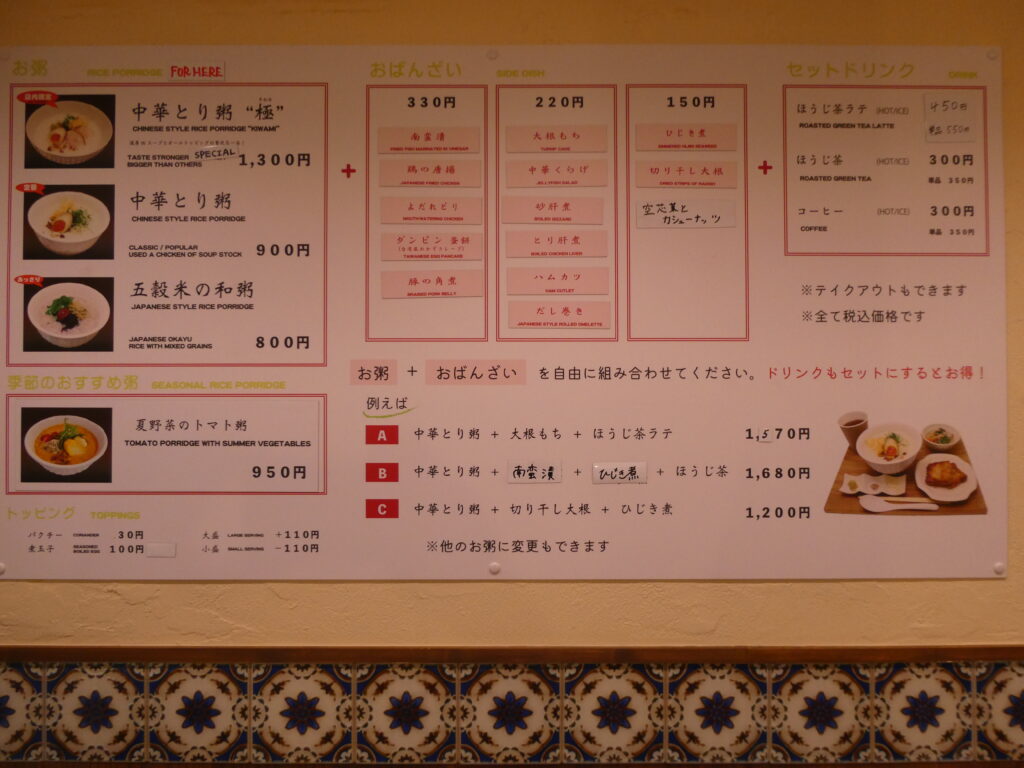 お粥 RICE PORRIDGE FOR HERE
店内限定
中華とり粥 “極”
CHINESE STYLE RICE PORRIDGE "KIWAMI"
TASTE STRONGER SPECIAL
BIGGER THAN OTHERS
1,300円
定番
中華とり粥
CHINESE STYLE RICE PORRIDGE
CLASSIC / POPULAR
USED A CHICKEN OF SOUP STOCK
900円
あっさり
五穀米の和粥
JAPANESE STYLE RICE PORRIDGE
JAPANESE OKAYU
RICE WITH MIXED GRAINS
800円
季節のおすすめ粥 SEASONAL RICE PORRIDGE
夏野菜のトマト粥
TOMATO PORRIDGE WITH SUMMER VEGETABLES
950円
トッピング TOPPINGS
パクチー CORIANDER 30円
煮玉子 SEASONED BOILED EGG 100円
大盛 LARGE SERVING +110円
小盛 SMALL SERVING -110円
+
おばんざい SIDE DISH
330円
南蛮漬
FRIED FISH MARINATED IN VINEGAR
鶏の唐揚
JAPANESE FRIED CHICKEN
よだれどり
MOUTHWATERING CHICKEN
ダンビン 蛋餅
(台湾風おかずクレープ)
TAIWANESE EGG PANCAKE
豚の角煮
BRAISED PORK BELLY
220円
大根もち
TURNIP CAKE
中華くらげ
JELLYFISH SALAD
砂肝煮
BOILED GIZZARD
とり肝煮
BOILED CHICKEN LIVER
ハムカツ
HAM CUTLET
だし巻き
JAPANESE STYLE ROLLED OMELETTE
150円
ひじき煮
SIMMERED HIJIKI SEAWEED
切り干し大根
DRIED STRIPS OF RADISH
空芯菜と
カシューナッツ
+
セットドリンク DRINK
ほうじ茶ラテ (HOT/ICE) 450円
ROASTED GREEN TEA LATTE 単品 550円
ほうじ茶 (HOT/ICE) 300円
ROASTED GREEN TEA 単品 350円
コーヒー (HOT/ICE) 300円
COFFEE 単品 350円
※テイクアウトもできます
※全て税込価格です
お粥 + おばんざい を自由に組み合わせてください。ドリンクもセットにするとお得！
例えば
A 中華とり粥 + 大根もち + ほうじ茶ラテ 1,570円
B 中華とり粥 + 南蛮漬 + ひじき煮 + ほうじ茶 1,680円
C 中華とり粥 + 切り干し大根 + ひじき煮 1,200円
※他のお粥に変更もできます